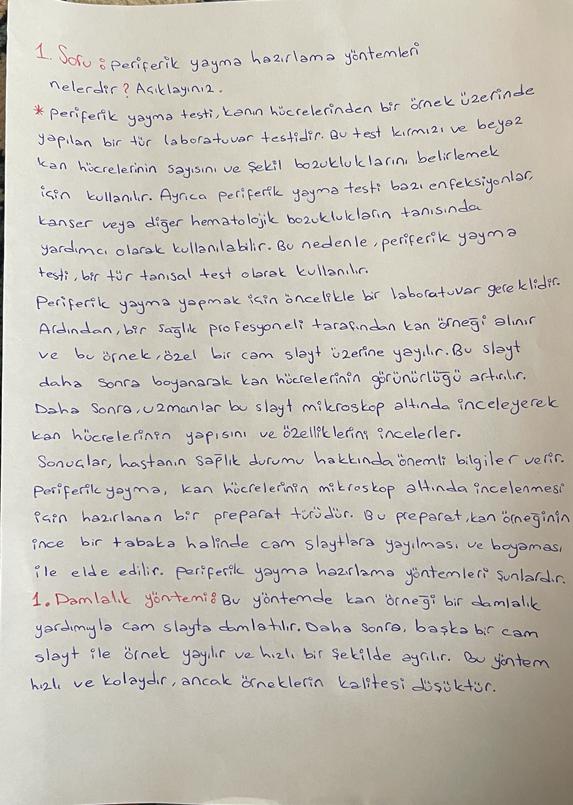 1. Soru : periferik yayma hazırlama yöntemleri
nelerdir? Açıklayınız.
* periferik yayma testi, kanın hücrelerinden bir örnek üzerinde
yapılan bir tür laboratuvar testidir. Bu test kırmızı ve beyaz
kan hücrelerinin sayısını ve şekil bozukluklarını belirlemek
için kullanılır. Ayrıca periferik yayma testi bazı enfeksiyonlar,
kanser veya diğer hematolojik bozuklukların tanısında
yardımcı olarak kullanılabilir. Bu nedenle, periferik yayma
testi, bir tür tanısal test olarak kullanılır.
Periferik yayma yapmak için öncelikle bir laboratuvar gereklidir.
Ardından, bir sağlık profesyoneli tarafından kan örneği alınır
ve bu örnek, özel bir cam slayt üzerine yayılır. Bu slayt
daha sonra boyanarak kan hücrelerinin görünürlüğü artırılır.
Daha sonra, uzmanlar bu slayt mikroskop altında inceleyerek
kan hücrelerinin yapısını ve özelliklerini incelerler.
Sonuçlar, hastanın sağlık durumu hakkında önemli bilgiler verir.
Periferik yayma, kan hücrelerinin mikroskop altında incelenmesi
için hazırlanan bir preparat türüdür. Bu preparat, kan örneğinin
ince bir tabaka halinde cam slaytlara yayılması ve boyaması
ile elde edilir. Periferik yayma hazırlama yöntemleri şunlardır.
1. Damlalık yöntemi: Bu yöntemde kan örneği bir damlalık
yardımıyla cam slayta damlatılır. Daha sonra, başka bir cam
slayt ile örnek yayılır ve hızlı bir şekilde ayrılır. Bu yöntem
hızlı ve kolaydır, ancak örneklerin kalitesi düşüktür.